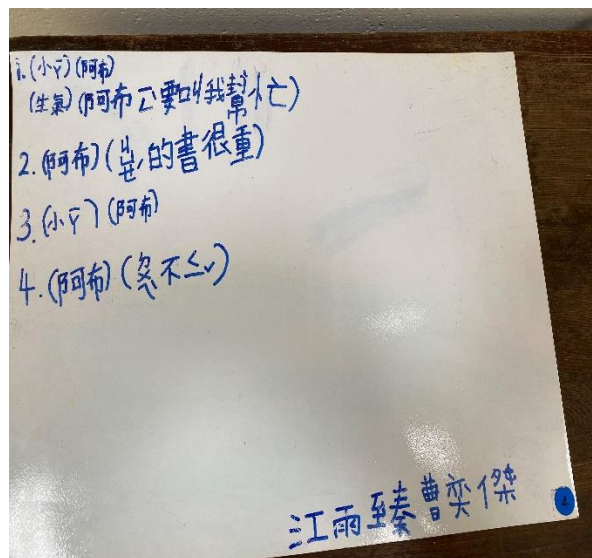 1.(小ㄚ)(阿布)
(生氣)(阿布ㄧ要叫我幫忙)
2.(阿布)(ㄐㄧㄝˋ的書很重)
3.(小ㄚ)(阿布)
4.(阿布)(ㄉㄨㄟˋ不ㄑㄧˇ)
江雨臻 曹奕傑
4